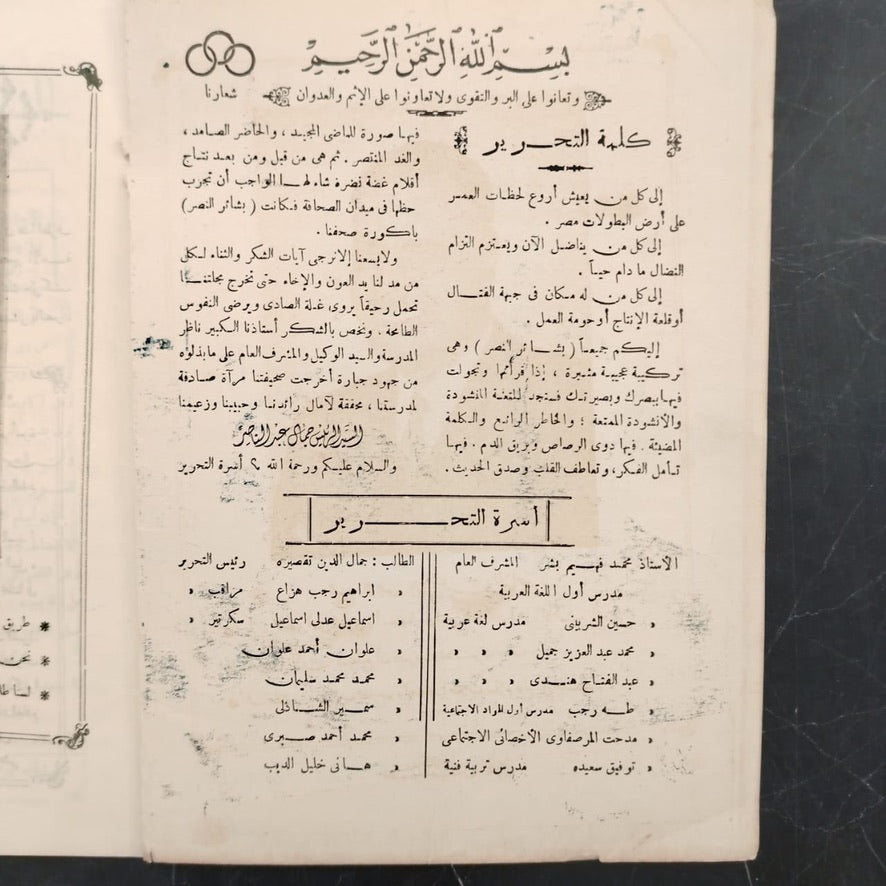 بسم الله الرحمن الرحيم
وتعانوا على البر والتقوى ولا تعاونوا على الإثم والعدوان شعارنا
كلمة التحرير
إلى كل من يعيش أروع لحظات العمر
على أرض البطولات مصر .
إلى كل من يناضل الآن ويعتزم التزام
النضال ما دام حياً .
إلى كل من له مكان فى جبهة القتال
أو قلعة الإنتاج أو حومة العمل .
إليكم جميعاً ( بشائر النصر ) وهى
تركيبة عجيبة مثيرة ، إذا قرأتها وتجولت
فيها ببصرك وبصيرتك فستجد للمتعة المنشودة
والأنشودة الممتعة ؛ والخاطر الرائع والكلمة
المضيئة . فيها دوى الرصاص وبريق الدم . فيها
تأمل الفكر ، وتعاطف القلب وصدق الحديث .
فيها صورة للماضى المجيد ، والحاضر الصامد ،
والغد المنتصر . ثم هى من قبل ومن بعد نتاج
أقلام غضة نضرة شاء لها الواجب أن تجرب
حظها فى ميدان الصحافة فكانت ( بشائر النصر )
باكورة صحفنا .
ولا يسعنا إلا نرجى آيات الشكر والثناء لكل
من مد لنا يد العون والإخاء حتى تخرج مجلتنا
تحمل رحيقاً يروى غلة الصادى ويرضى النفوس
الطامحة . ونخص بالشكر أستاذنا الكبير ناظر
المدرسة والسيد الوكيل والمشرف العام على ما بذلوه
من جهود جبارة أخرجت صحيفتنا مرآة صادقة
لمدرستنا ، محققة لآمال رائدنا وحبيبنا وزعيمنا
السيد الرئيس جمال عبد الناصر
والسلام عليكم ورحمة الله ؟ أسرة التحرير
أسرة التحرير
الأستاذ محمد فهيم بشر المشرف العام
مدرس أول اللغة العربية
» حسين الشربينى مدرس لغة عربية
» محمد عبد العزيز جميل » » »
» عبد الفتاح هندى » » »
» طه رجب مدرس أول المواد الاجتماعية
» مدحت المرصفاوى الأخصائى الاجتماعى
» توفيق سعيده مدرس تربية فنية
الطالب : جمال الدين تقصيره رئيس التحرير
» ابراهيم رجب هزاع مراقب »
» اسماعيل عدلى اسماعيل سكرتير »
» علوان أحمد علوان
» محمد محمد سليمان
» سمير الشاذلى
» محمد أحمد صبرى
» هانى خليل الديب
* طريق
* نحن
* لسا